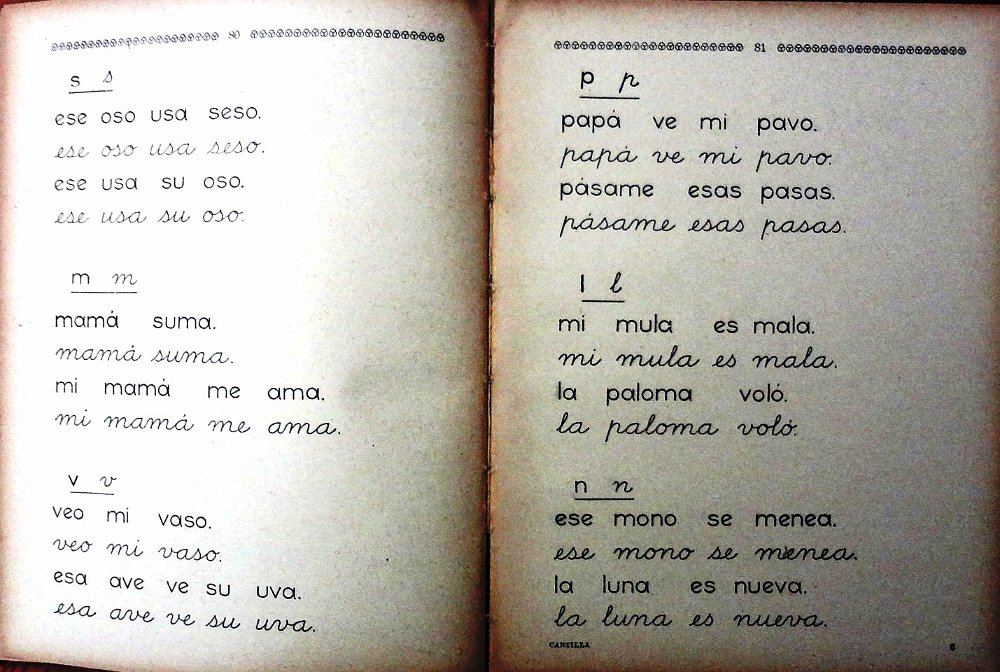 80
s s
ese oso usa seso.
ese oso usa seso.
ese usa su oso.
ese usa su oso.
m m
mamá suma.
mamá suma.
mi mamá me ama.
mi mamá me ama.
v v
veo mi vaso.
veo mi vaso.
esa ave ve su uva.
esa ave ve su uva.
81
p p
papá ve mi pavo.
papá ve mi pavo.
pásame esas pasas.
pásame esas pasas.
l l
mi mula es mala.
mi mula es mala.
la paloma voló.
la paloma voló.
n n
ese mono se menea.
ese mono se menea.
la luna es nueva.
la luna es nueva.
CARTILLA 6